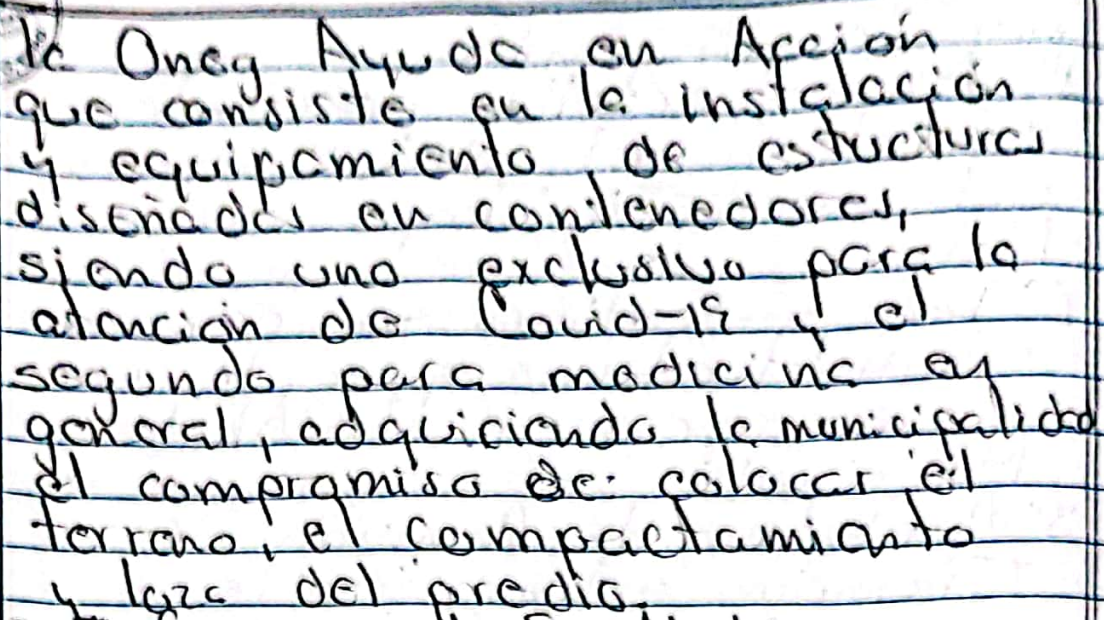 la Oneg Ayuda en Acción
que consiste en la instalación
y equipamiento de estucturas
diseñadas en contenedores,
siendo uno exclusivo para la
atención de Covid-19 y el
segundo para medicina en
general, adquiciendo la municipalidad
el compromiso de colocar el
terreno, el compactamiento
y laza del predio.